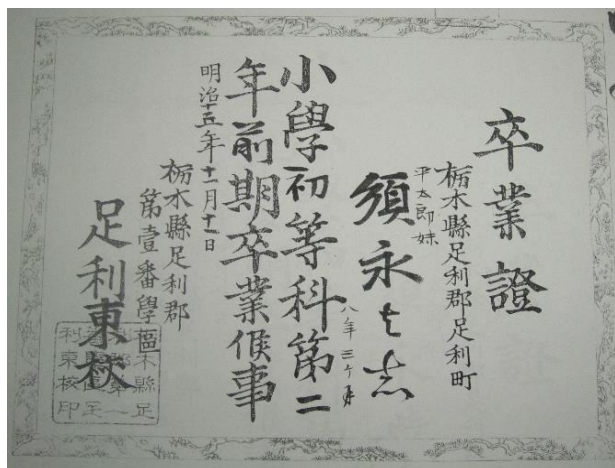 卒業證
栃木縣足利郡足利町
平太郎妹
須永とき志
八年三ヶ月
小學初等科第二
年前期卒業候事
明治十五年十一月十一日
栃木縣足利郡
第壹番學區
足利東校